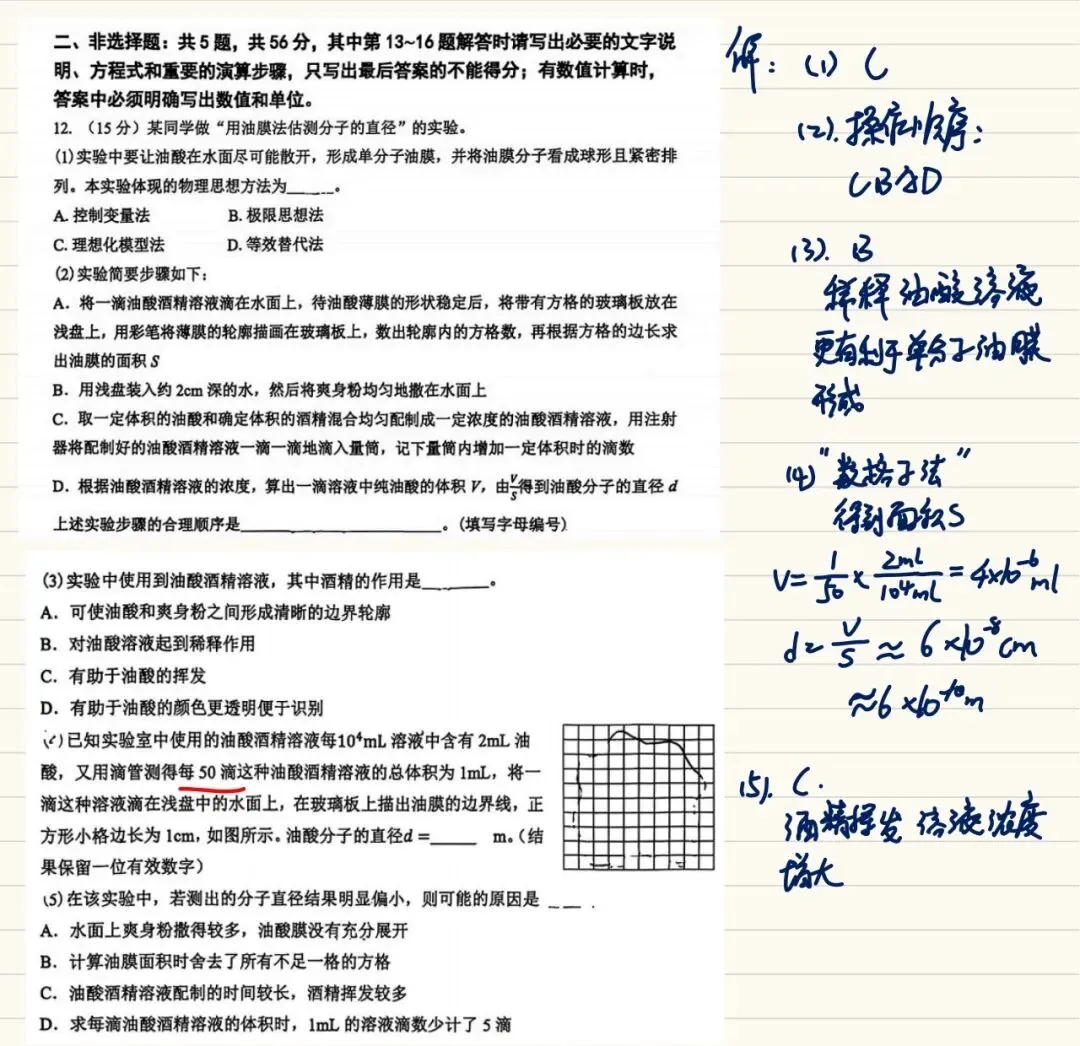 二、非选择题：共5题，共56分，其中第13~16题解答时请写出必要的文字说
明、方程式和重要的演算步骤，只写出最后答案的不能得分；有数值计算时，
答案中必须明确写出数值和单位。
12. （15分）某同学做“用油膜法估测分子的直径”的实验。
(1)实验中要让油酸在水面尽可能散开，形成单分子油膜，并将油膜分子看成球形且紧密排
列。本实验体现的物理思想方法为______。
A. 控制变量法 B. 极限思想法
C. 理想化模型法 D. 等效替代法
(2)实验简要步骤如下：
A．将一滴油酸酒精溶液滴在水面上，待油酸薄膜的形状稳定后，将带有方格的玻璃板放在
浅盘上，用彩笔将薄膜的轮廓描画在玻璃板上，数出轮廓内的方格数，再根据方格的边长求
出油膜的面积S
B．用浅盘装入约2cm深的水，然后将爽身粉均匀地撒在水面上
C．取一定体积的油酸和确定体积的酒精混合均匀配制成一定浓度的油酸酒精溶液，用注射
器将配制好的油酸酒精溶液一滴一滴地滴入量筒，记下量筒内增加一定体积时的滴数
D．根据油酸酒精溶液的浓度，算出一滴溶液中纯油酸的体积V，由V/S得到油酸分子的直径d
上述实验步骤的合理顺序是____________________。(填写字母编号)
(3)实验中使用到油酸酒精溶液，其中酒精的作用是________。
A．可使油酸和爽身粉之间形成清晰的边界轮廓
B．对油酸溶液起到稀释作用
C．有助于油酸的挥发
D．有助于油酸的颜色更透明便于识别
()已知实验室中使用的油酸酒精溶液每10⁴mL溶液中含有2mL油
酸，又用滴管测得每50滴这种油酸酒精溶液的总体积为1mL，将一
滴这种溶液滴在浅盘中的水面上，在玻璃板上描出油膜的边界线，正
方形小格边长为1cm，如图所示。油酸分子的直径d =_____ m。(结
果保留一位有效数字)
(5)在该实验中，若测出的分子直径结果明显偏小，则可能的原因是 ____ .
A．水面上爽身粉撒得较多，油酸膜没有充分展开
B．计算油膜面积时舍去了所有不足一格的方格
C．油酸酒精溶液配制的时间较长，酒精挥发较多
D．求每滴油酸酒精溶液的体积时，1mL的溶液滴数少计了5滴
解：(1) C
(2). 操作顺序：
CBAD
(3). B
稀释油酸溶液
更有利于单分子油膜
形成
(4) “数格子法”
得到面积S
V=1/50×2ml/10⁴ml=4×10⁻⁶ml
d=V/S≈6×10⁻⁸cm
≈6×10⁻¹⁰m
(5). C.
酒精挥发 溶液浓度
增大